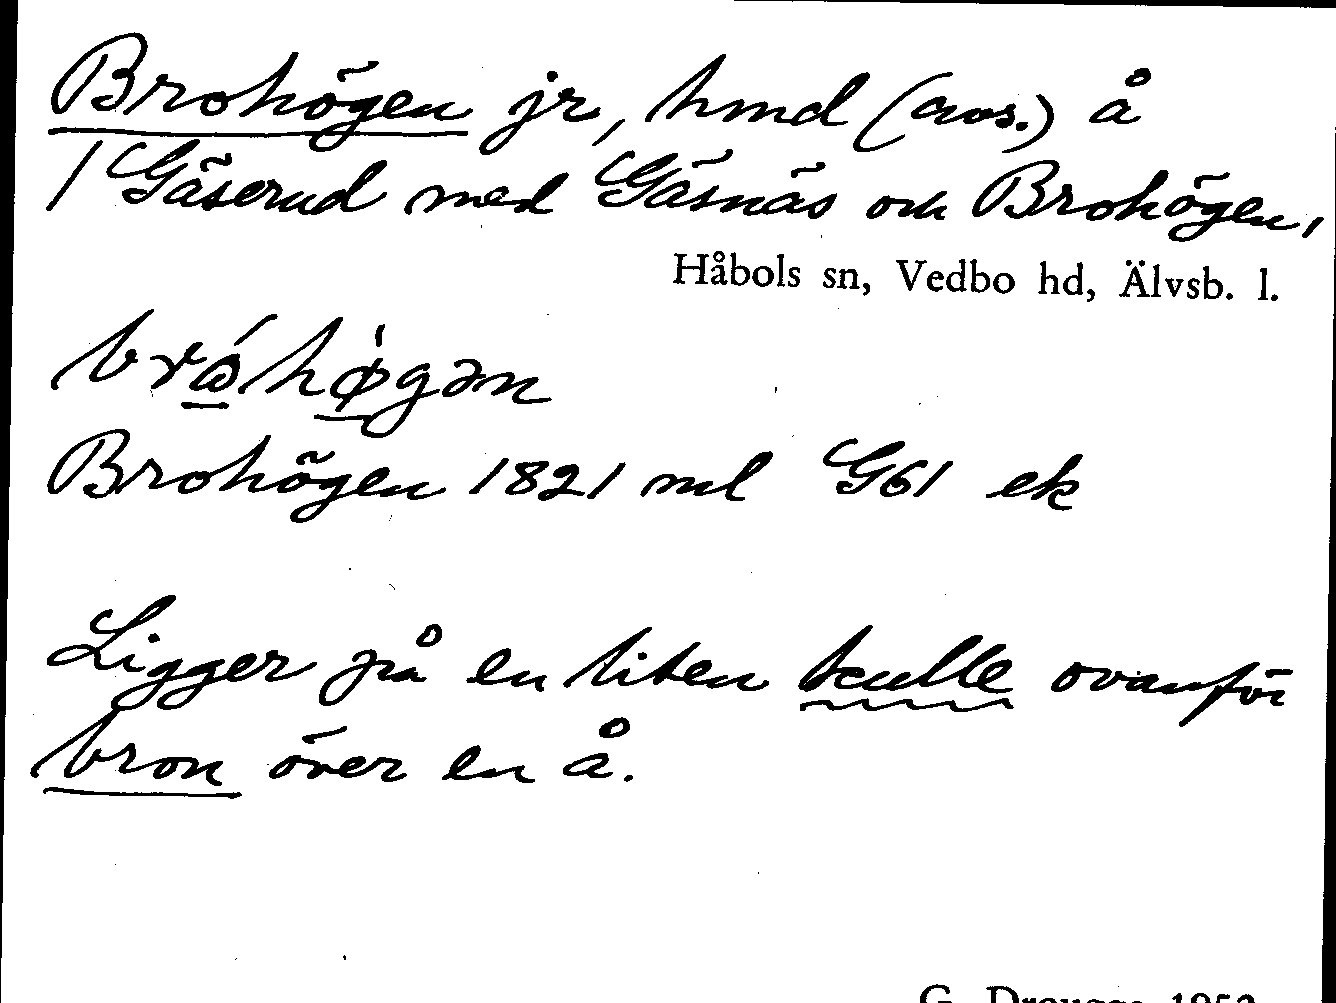 Brohögen jr, hmd (avs.) å
/ Gäserud med Gäsnäs och Brohögen,
Håbols sn, Vedbo hd, Älvsb. l.
bróhø̀gən
Brohögen 1821 ml G61 ek
Ligger på en liten kulle ovanför
bron över en å.
G. Drougge 1952